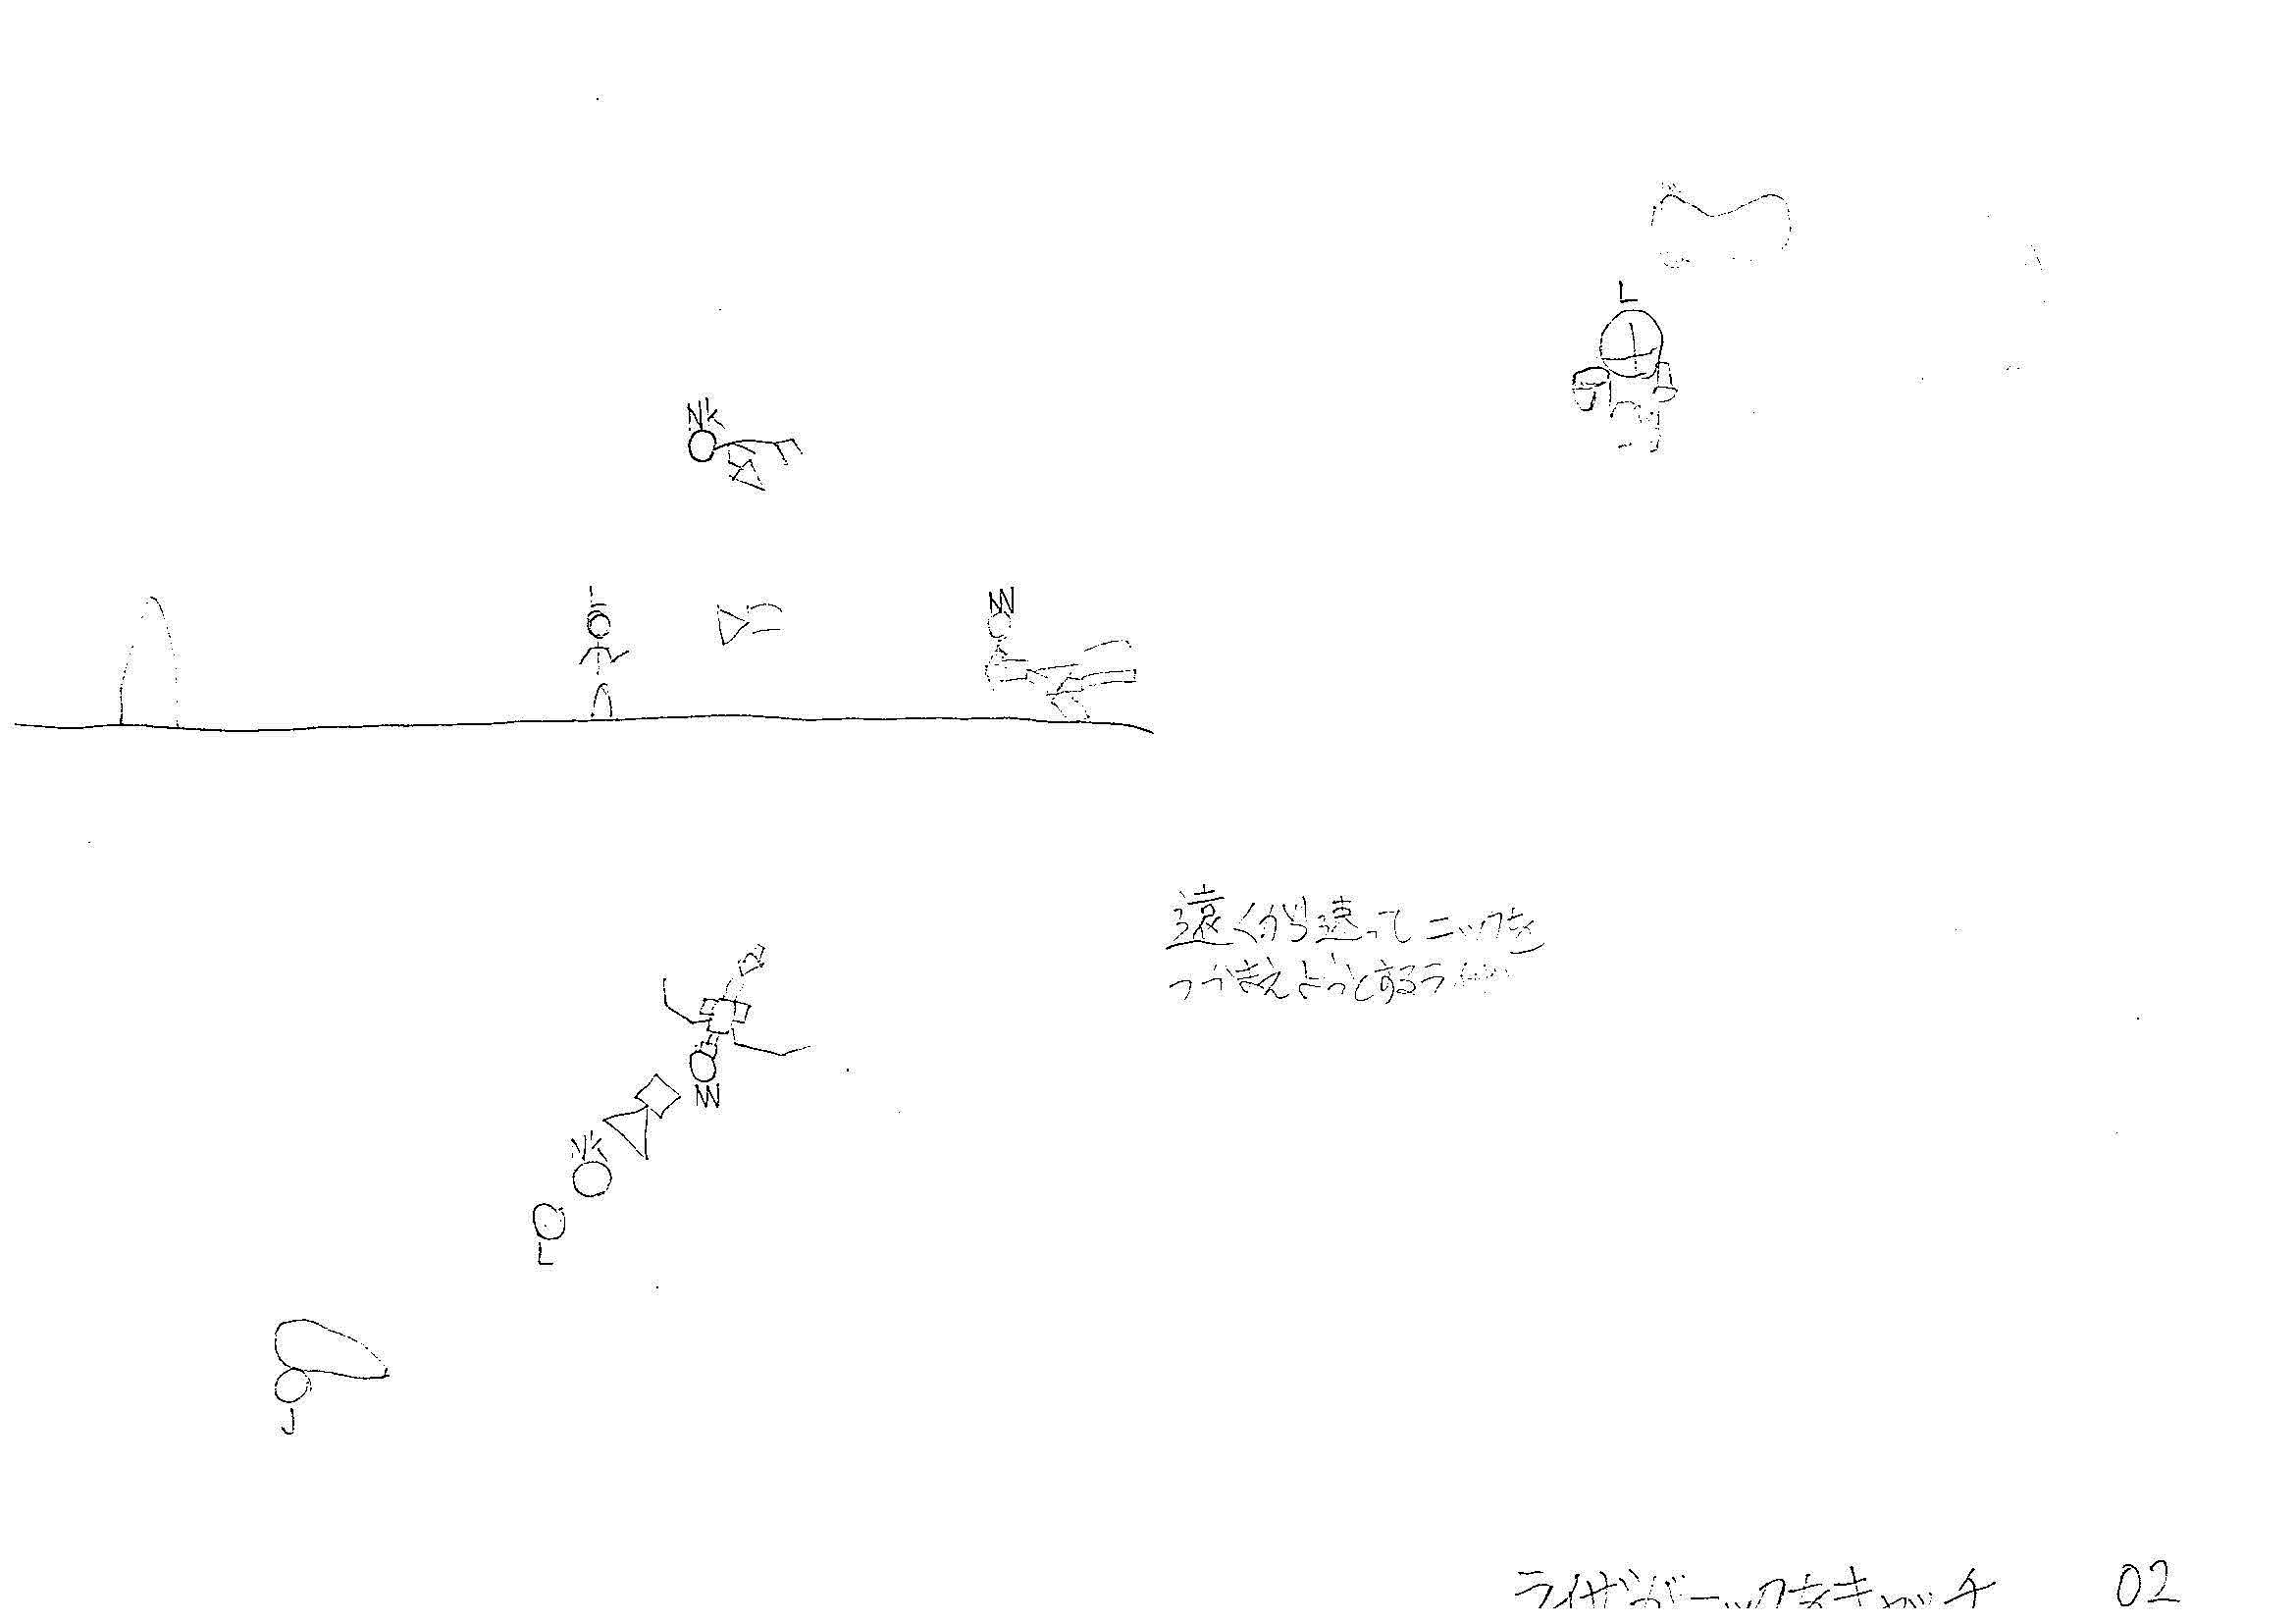 L
Nk
L
NN
遠くから速って ニックを
つかまえようとするラ
NN
Nk
L
J
ライザがニックをキャッチ 02